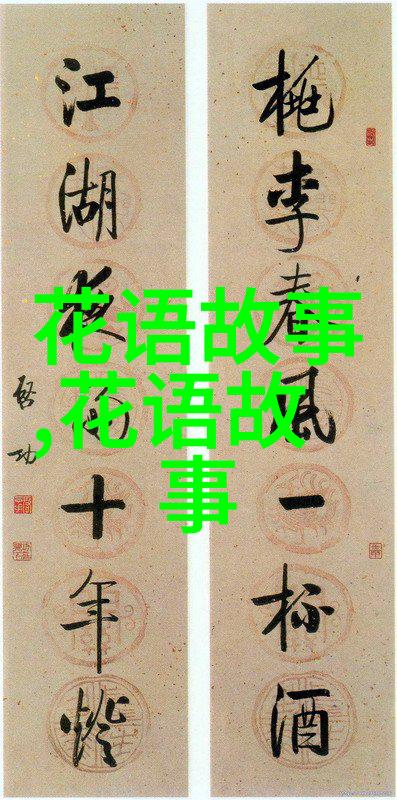 桃李春风一杯酒
江湖夜雨十年灯
启功
花语故事
,花语故
事